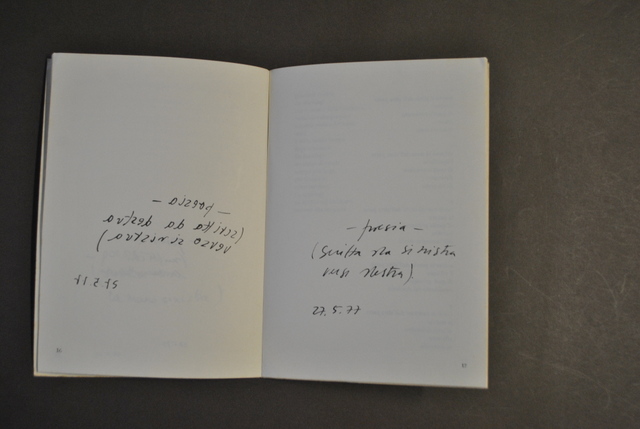 — poesia —
(scritta da destra
verso sinistra)
27.5.77
— poesia —
(scritta da sinistra
verso destra).
27.5.77